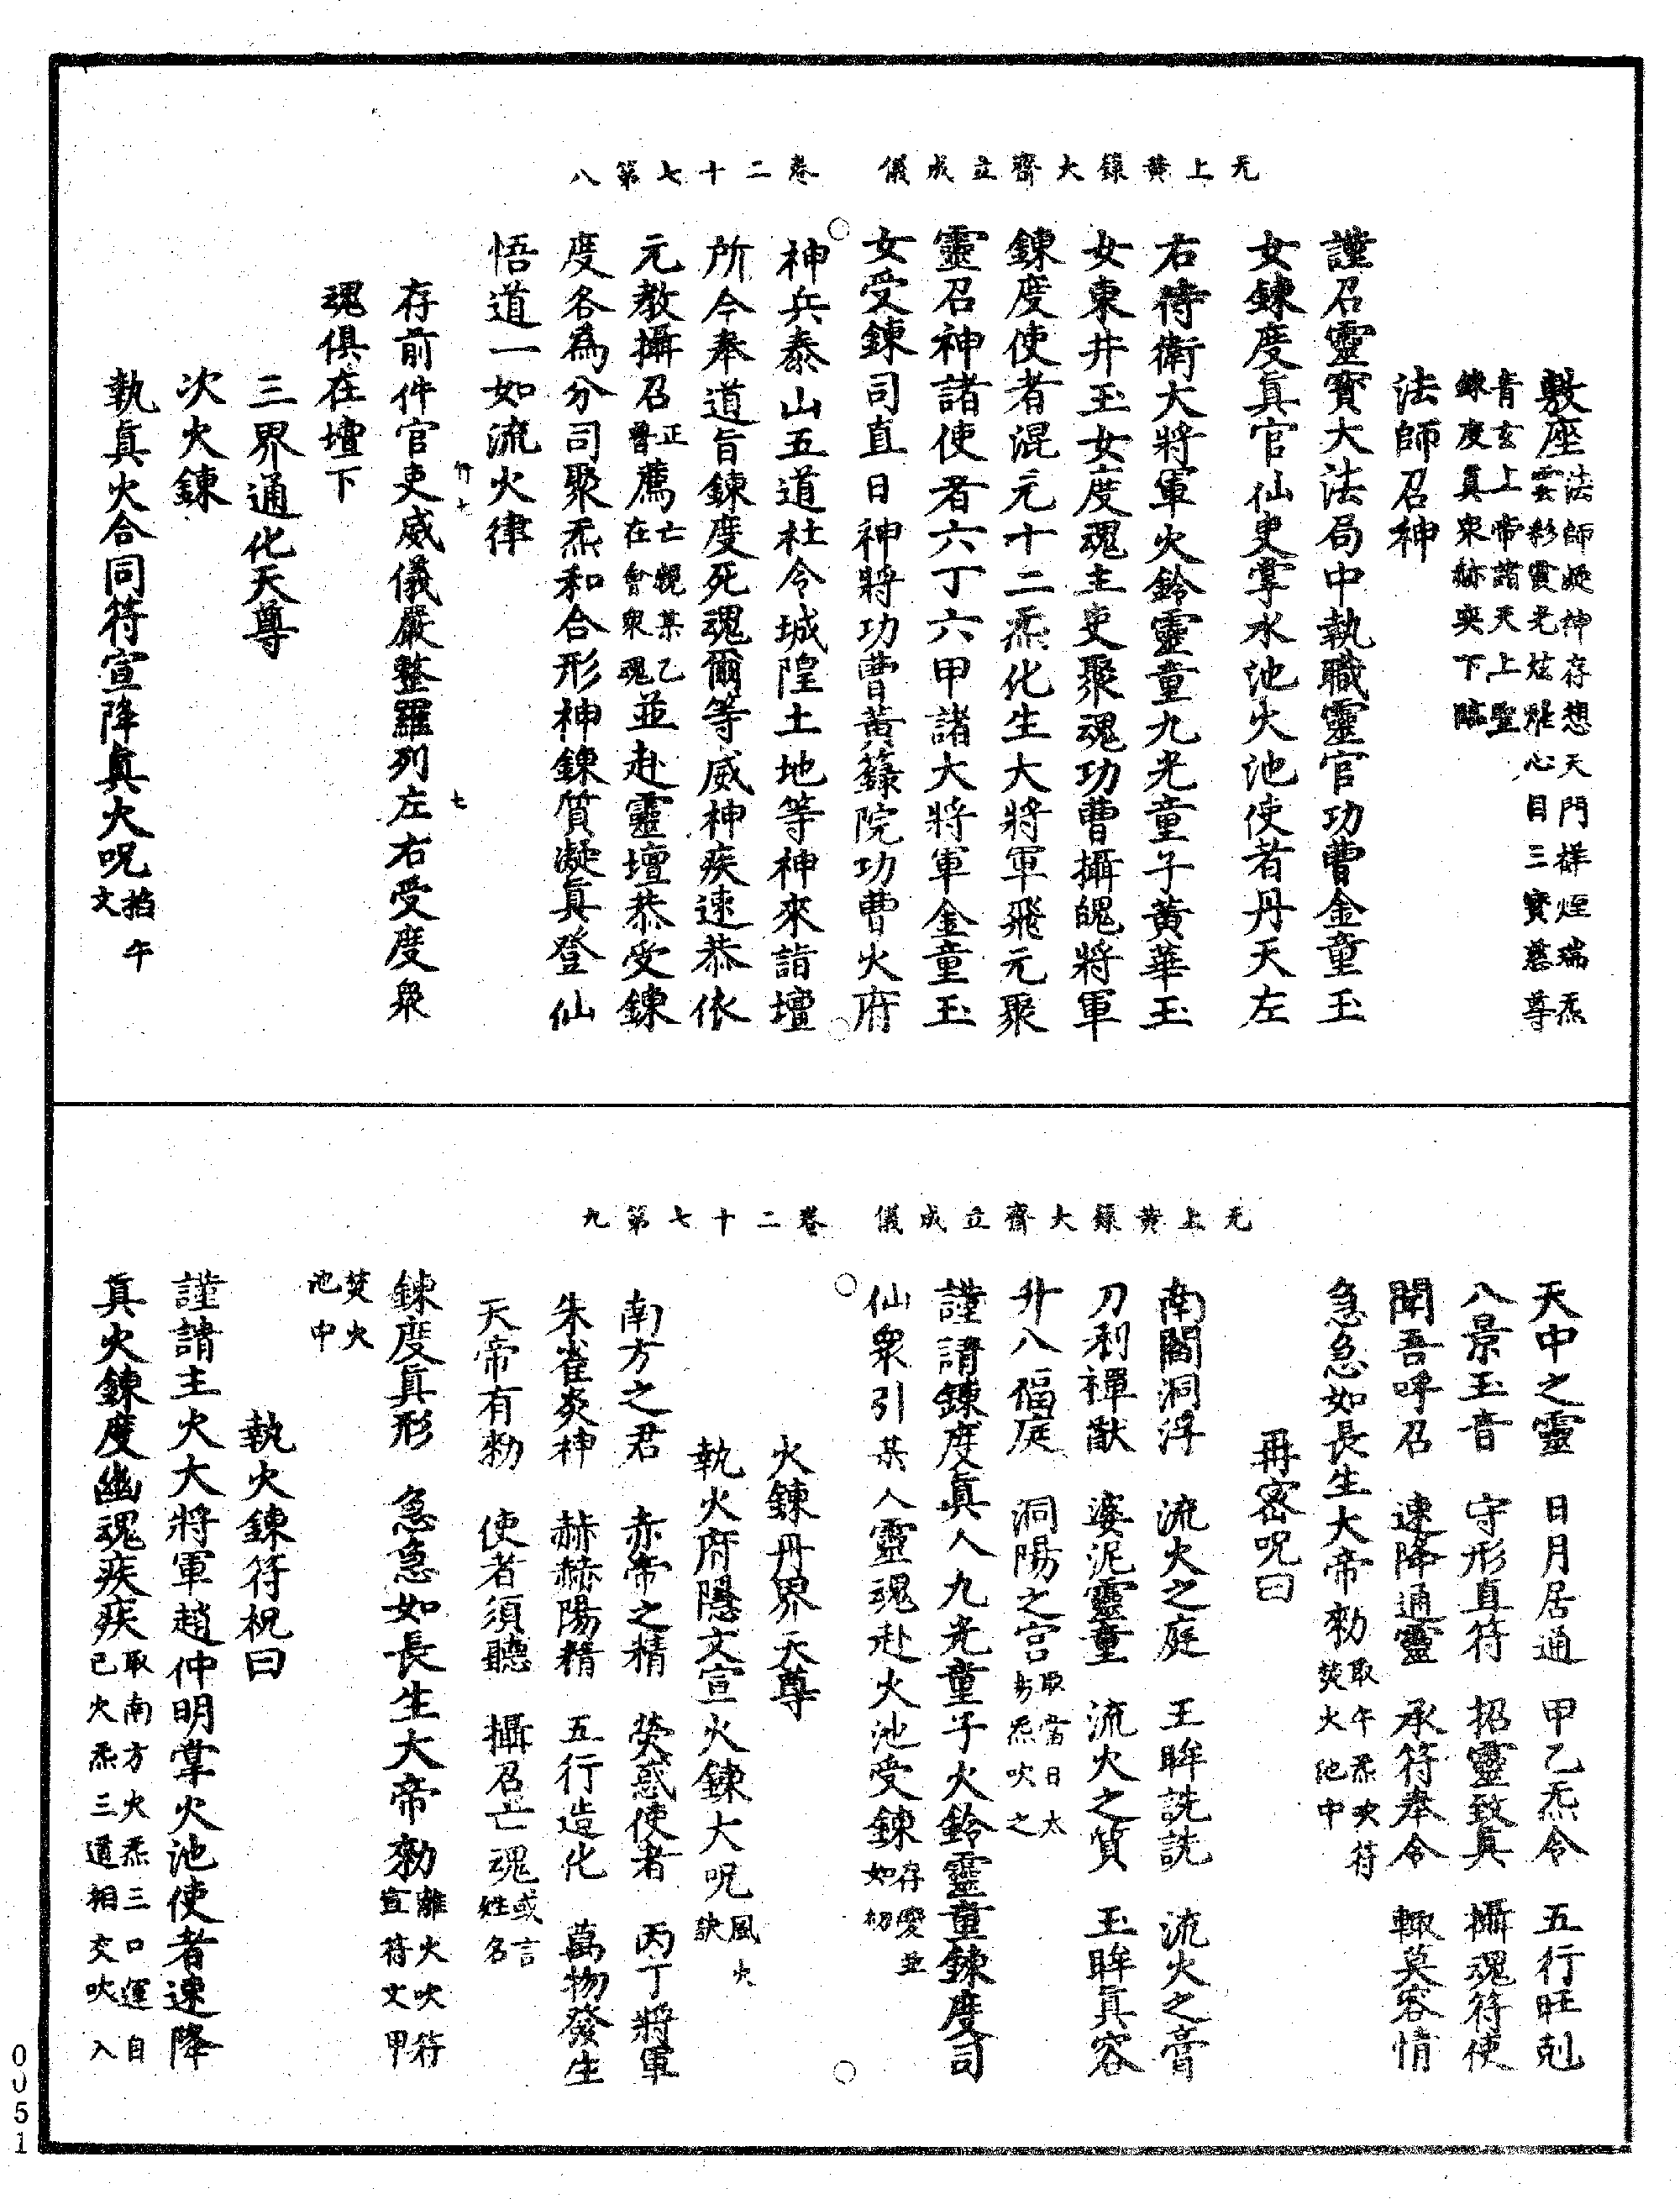 无上黃籙大齋立成儀　卷二十七第八
敷座法師凝神存想天門祥煙瑞炁雲彩霞光炫耀心目三寶慈尊
青玄上帝諸天上聖鍊度眞衆紛奕下臨
法師召神
謹召靈寶大法局中執職靈官功曹金童玉
女鍊度眞官仙吏掌水池火池使者丹天左
右侍衛大將軍火鈴靈童九光童子黃華玉
女東井玉女度魂主吏聚魂功曹攝魄將軍
鍊度使者混元十二炁化生大將軍飛元聚
靈召神諸使者六丁六甲諸大將軍金童玉
女受鍊司直日神將功曹黃籙院功曹火府
神兵泰山五道社令城隍土地等神來詣壇
所今奉道旨鍊度死魂爾等威神疾速恭依
元教攝召正普薦亡親某乙在會衆魂並赴靈壇恭受鍊
度各爲分司聚炁和合形神鍊質凝眞登仙
悟道一如流火律
存前件官吏威儀嚴整羅列左右受度衆
魂俱在壇下
三界通化天尊
次火鍊
執眞火合同符宣降眞火呪掐午文
无上黃籙大齋立成儀　卷二十七第九
天中之靈　日月居通　甲乙炁令　五行旺剋
八景玉音　守形直符　招靈致眞　攝魂符使
聞吾呼召　速降通靈　承符奉令　輙莫容情
急急如長生大帝勑取午炁吹符焚火池中
再密呪曰
南閻洞浮　流火之庭　王眸詵詵　流火之膏
刀利禪猷　婆泥靈童　流火之質　玉眸眞容
升八偪庭　洞陽之宮取當日太歲炁吹之
謹請鍊度眞人九光童子火鈴靈童鍊度司
仙衆引某人靈魂赴火池受鍊存變並如初
火鍊丹界天尊
執火府隱文宣火鍊大呪風火訣
南方之君　赤帝之精　熒惑使者　丙丁將軍
朱雀炎神　赫赫陽精　五行造化　萬物發生
天帝有勑　使者須聽　攝召亡魂或言姓名
鍊度真形　急急如長生大帝勑離火吹符宣符文甲
焚火池中
執火鍊符祝曰
謹請主火大將軍趙仲明掌火池使者速降
真火鍊度幽魂疾疾取南方火炁三口運自己火炁三道相交吹入
0051